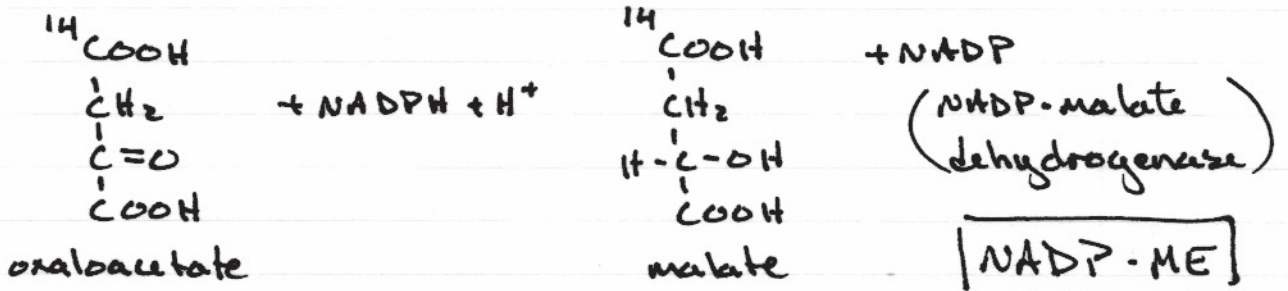 14COOH
CH2
C=O
COOH
oxaloacetate
+ NADPH + H+
14COOH
CH2
H-C-OH
COOH
malate
+ NADP
(NADP-malate
dehydrogenase)
NADP-ME